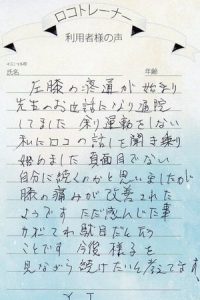 ロコトレーナー
利用者様の声
氏名
年齢
左膝の疼痛が始まり
先生のお世話になり通院
してました 余り運動をしない
私にロコの話を聞き乗り
始めました 真面目でない
自分に続くのかと思いましたが
膝の痛みが改善された
ようです ただ感じた事
カずてれ駄目だと云う
ことです 今後様子を
見ながら続けたいと考えてます
Y I